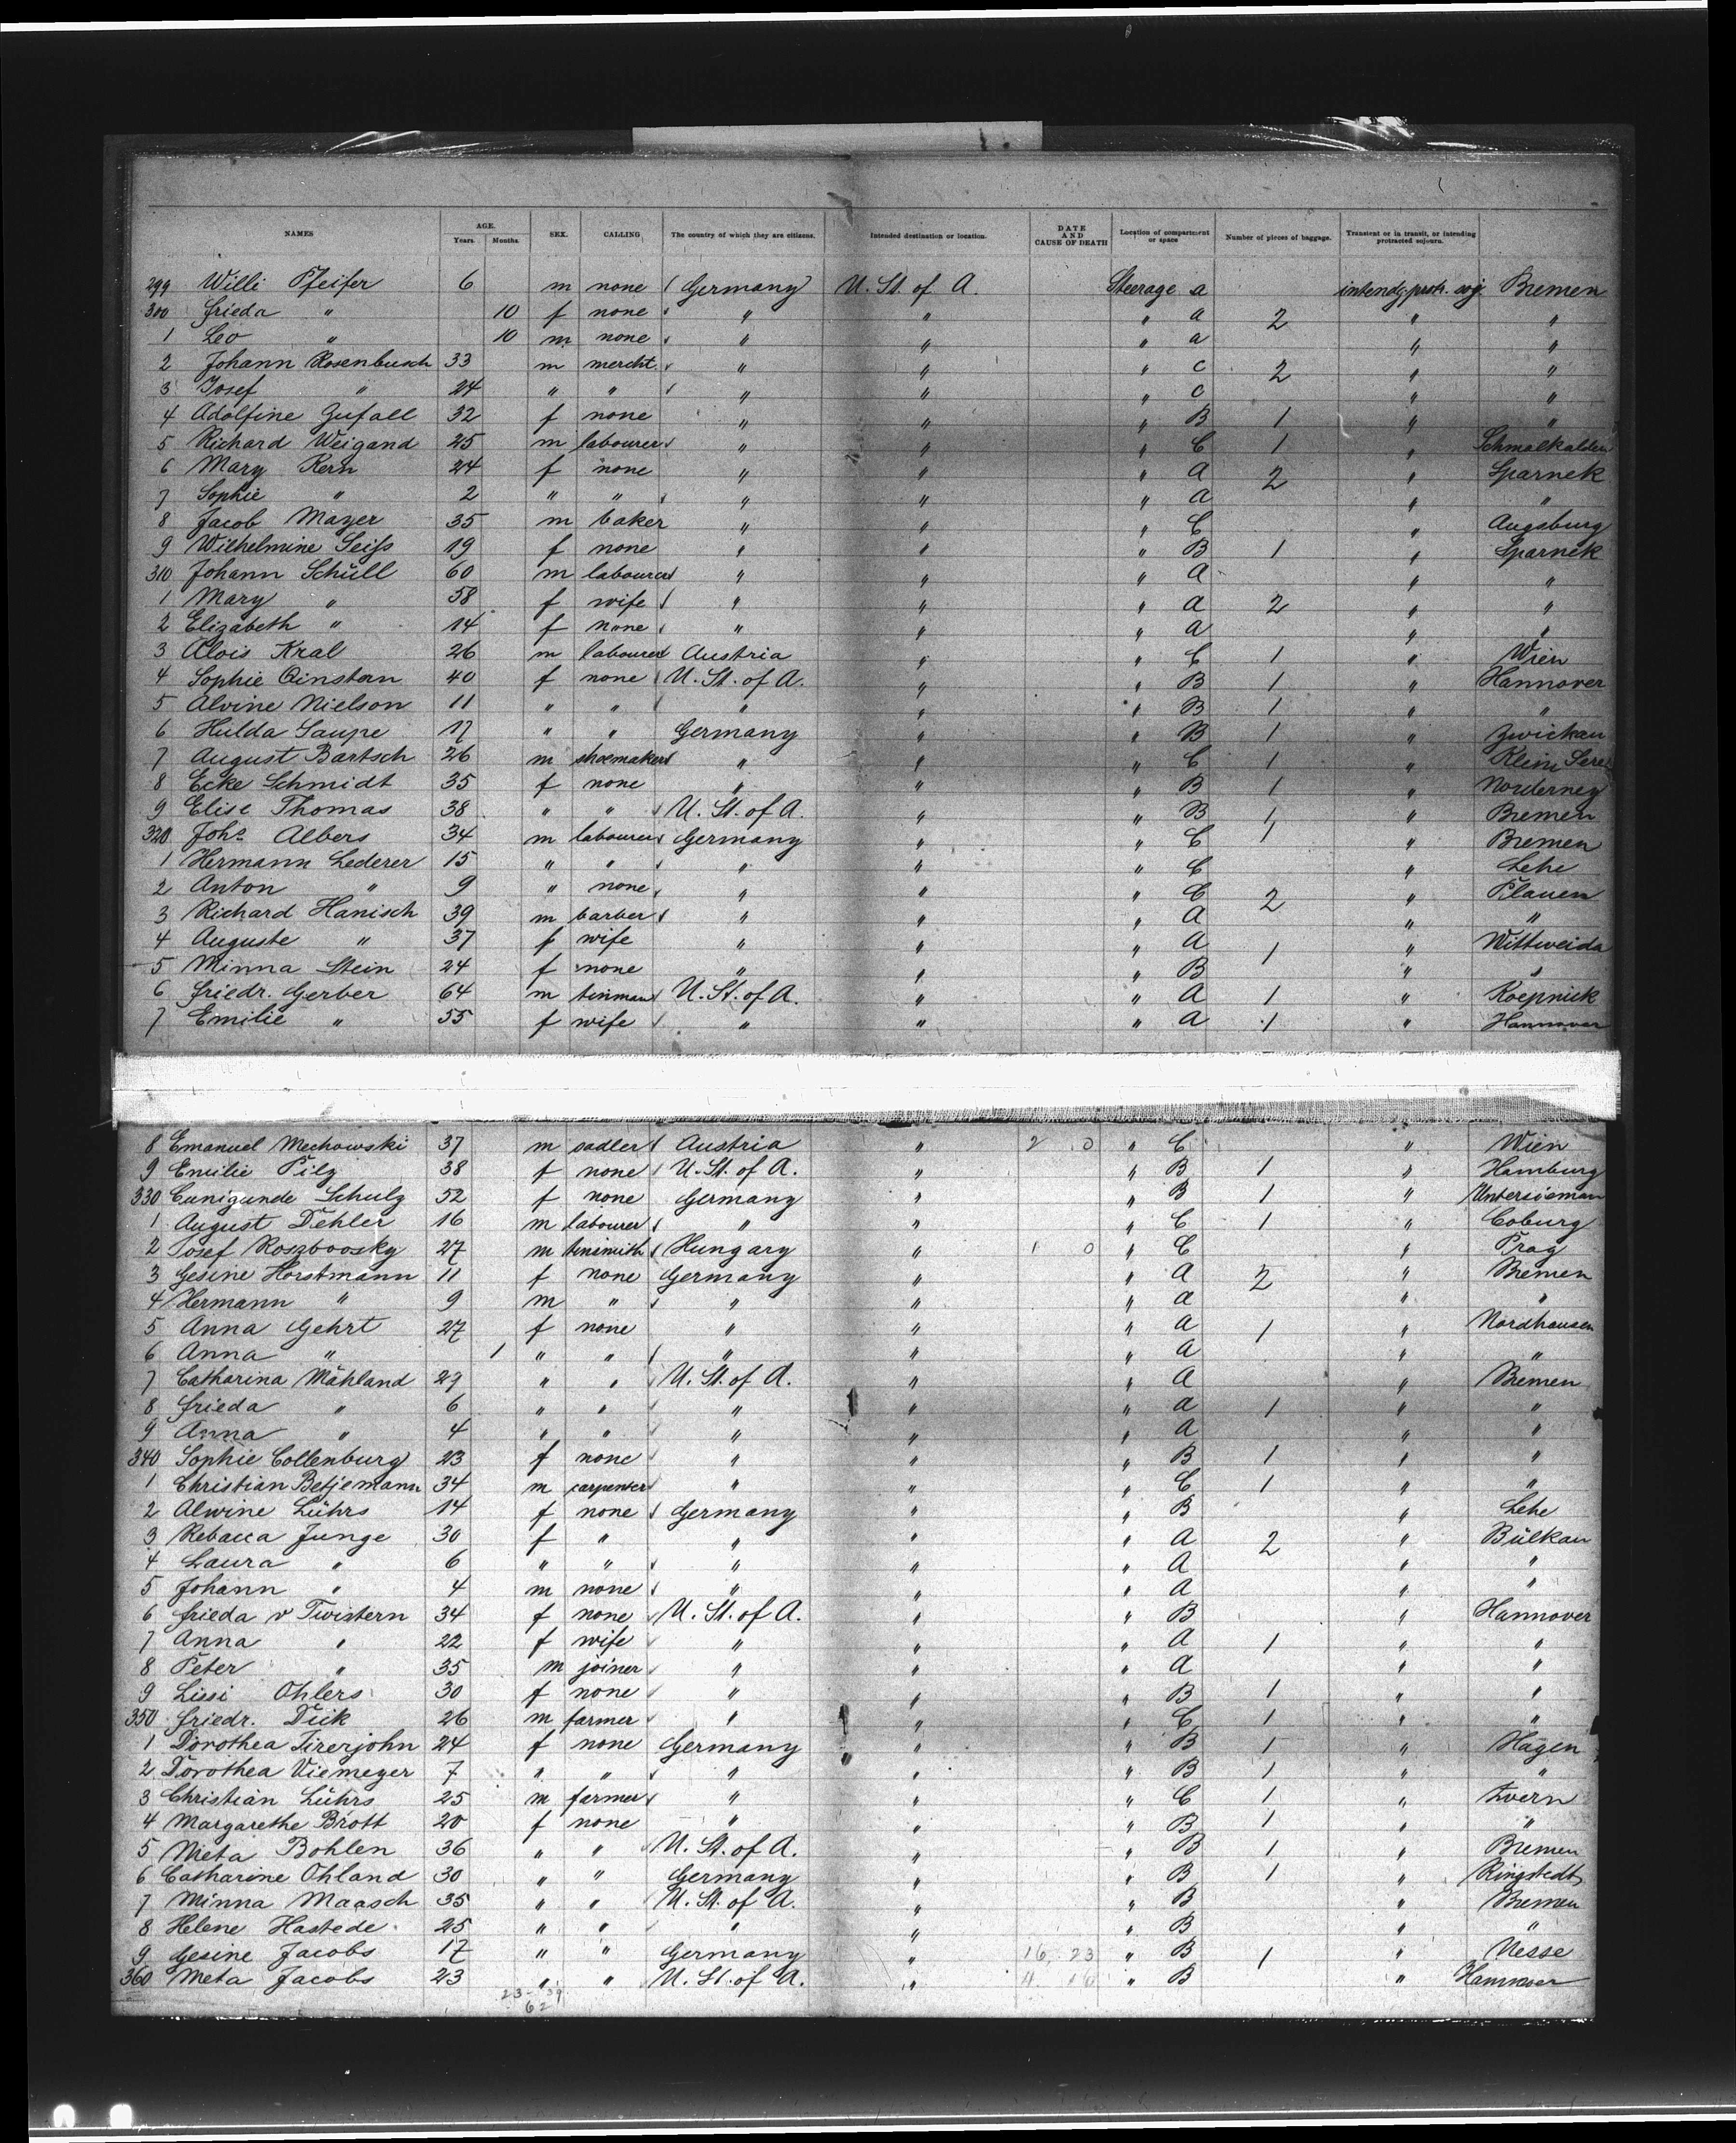 NAMES AGE. Years. Months. SEX. CALLING The country of which they are citizens. Intended destination or location. DATE AND CAUSE OF DEATH Location of compartment or space Number of pieces of baggage. Transient or in transit, or intending protracted sojourn.
299 Willi Pfeifer 6 m none Germany U. St. of A. Steerage a intendg. protr. soj. Bremen
300 Frieda " 10 f none " " " a 2 " "
1 Leo " 10 m none " " " a " "
2 Johann Rosenbusch 33 m mercht. " " " c 2 " "
3 Josef " 24 " " " " " c " "
4 Adolfine Zufall 32 f none " " " B 1 " "
5 Richard Weigand 25 m labourer " " " C 1 " Schmalkalden
6 Mary Kern 24 f none " " " A 2 " Sparnek
7 Sophie " 2 " " " " " a " "
8 Jacob Mayer 35 m baker " " " C " Augsburg
9 Wilhelmine Seiss 19 f none " " " B 1 " Sparnek
310 Johann Schüll 60 m labourer " " " A " "
1 Mary " 58 f wife " " " a 2 " "
2 Elizabeth " 14 f none " " " a " "
3 Alois Kral 26 m labourer Austria " " C 1 " Wien
4 Sophie Qinstan 40 f none U. St. of A. " " B 1 " Hannover
5 Alvine Nielson 11 " " " " " B 1 " "
6 Hulda Saupe 17 " " Germany " " B 1 " Zwickau
7 August Bartsch 26 m shoemaker " " " C 1 " Klein
8 Ecke Schmidt 35 f none " " " B 1 " Norderney
9 Elise Thomas 38 " " U. St. of A. " " B 1 " Bremen
320 Johs Albers 34 m labourer Germany " " C 1 " Bremen
1 Hermann Lederer 15 " " " " " C " Lehe
2 Anton " 9 " none " " " C 2 " Plauen
3 Richard Hanisch 39 m barber " " " A " "
4 Auguste " 37 f wife " " " A 1 " Mittweida
5 Minna Stein 24 f none " " " B " "
6 Friedr. Gerber 64 m tinman U. St. of A. " " A 1 " Koepnick
7 Emilie " 55 f wife " " " A 1 " Hannover
8 Emanuel Mechowski 37 m sadler Austria " 2 0 " C " Wien
9 Emilie Pilz 38 f none U. St. of A. " " B 1 " Hamburg
330 Cunigunde Schulz 52 f none Germany " " B 1 "
1 August Dehler 16 m labourer " " " C 1 " Coburg
2 Josef Roszboosky 27 m tinsmith Hungary " 1 0 " C " Prag
3 Gesine Horstmann 11 f none Germany " " A 2 " Bremen
4 Hermann " 9 m " " " " a " "
5 Anna Gehrt 27 f none " " " A 1 " Nordhausen
6 Anna " 1 " " " " " A " "
7 Catharina Mähland 29 " " U. St. of A. " " A " Bremen
8 Frieda " 6 " " " " " a 1 " "
9 Anna " 4 " " " " " A " "
340 Sophie Collenburg 23 f none " " " B 1 " "
1 Christian Betjemann 34 m carpenter " " " C 1 " "
2 Alwine Lührs 14 f none Germany " " B " Lehe
3 Rebacca Junge 30 f " " " " A 2 " Bülkau
4 Laura " 6 " " " " " A " "
5 Johann " 4 m none " " " A " "
6 Frieda v Twistern 34 f none U. St. of A. " " B " Hannover
7 Anna " 22 f wife " " " A 1 " "
8 Peter " 35 m joiner " " " A " "
9 Lissi Ohlers 30 f none " " " B 1 " "
350 Friedr. Dick 26 m farmer " " " C 1 " "
1 Dorothea Tirerjohn 24 f none Germany " " B 1 " Hagen
2 Dorothea Viemeyer 7 " " " " " B 1 " "
3 Christian Lührs 25 m farmer " " " C 1 " Zvern
4 Margarethe Brott 20 f none " " " B 1 " "
5 Meta Bohlen 36 " " U. St. of A. " " B 1 " Bremen
6 Catharine Ohland 30 " " Germany " " B 1 " Ringstedt
7 Minna Maasch 35 " " U. St. of A. " " B " Bremen
8 Helene Hastede 25 " " " " " B " "
9 Gesine Jacobs 17 " " Germany " 16 23 " B 1 " Nesse
360 Meta Jacobs 23 " " U. St. of A. " 4 16 " B " Hannover
23 39
62